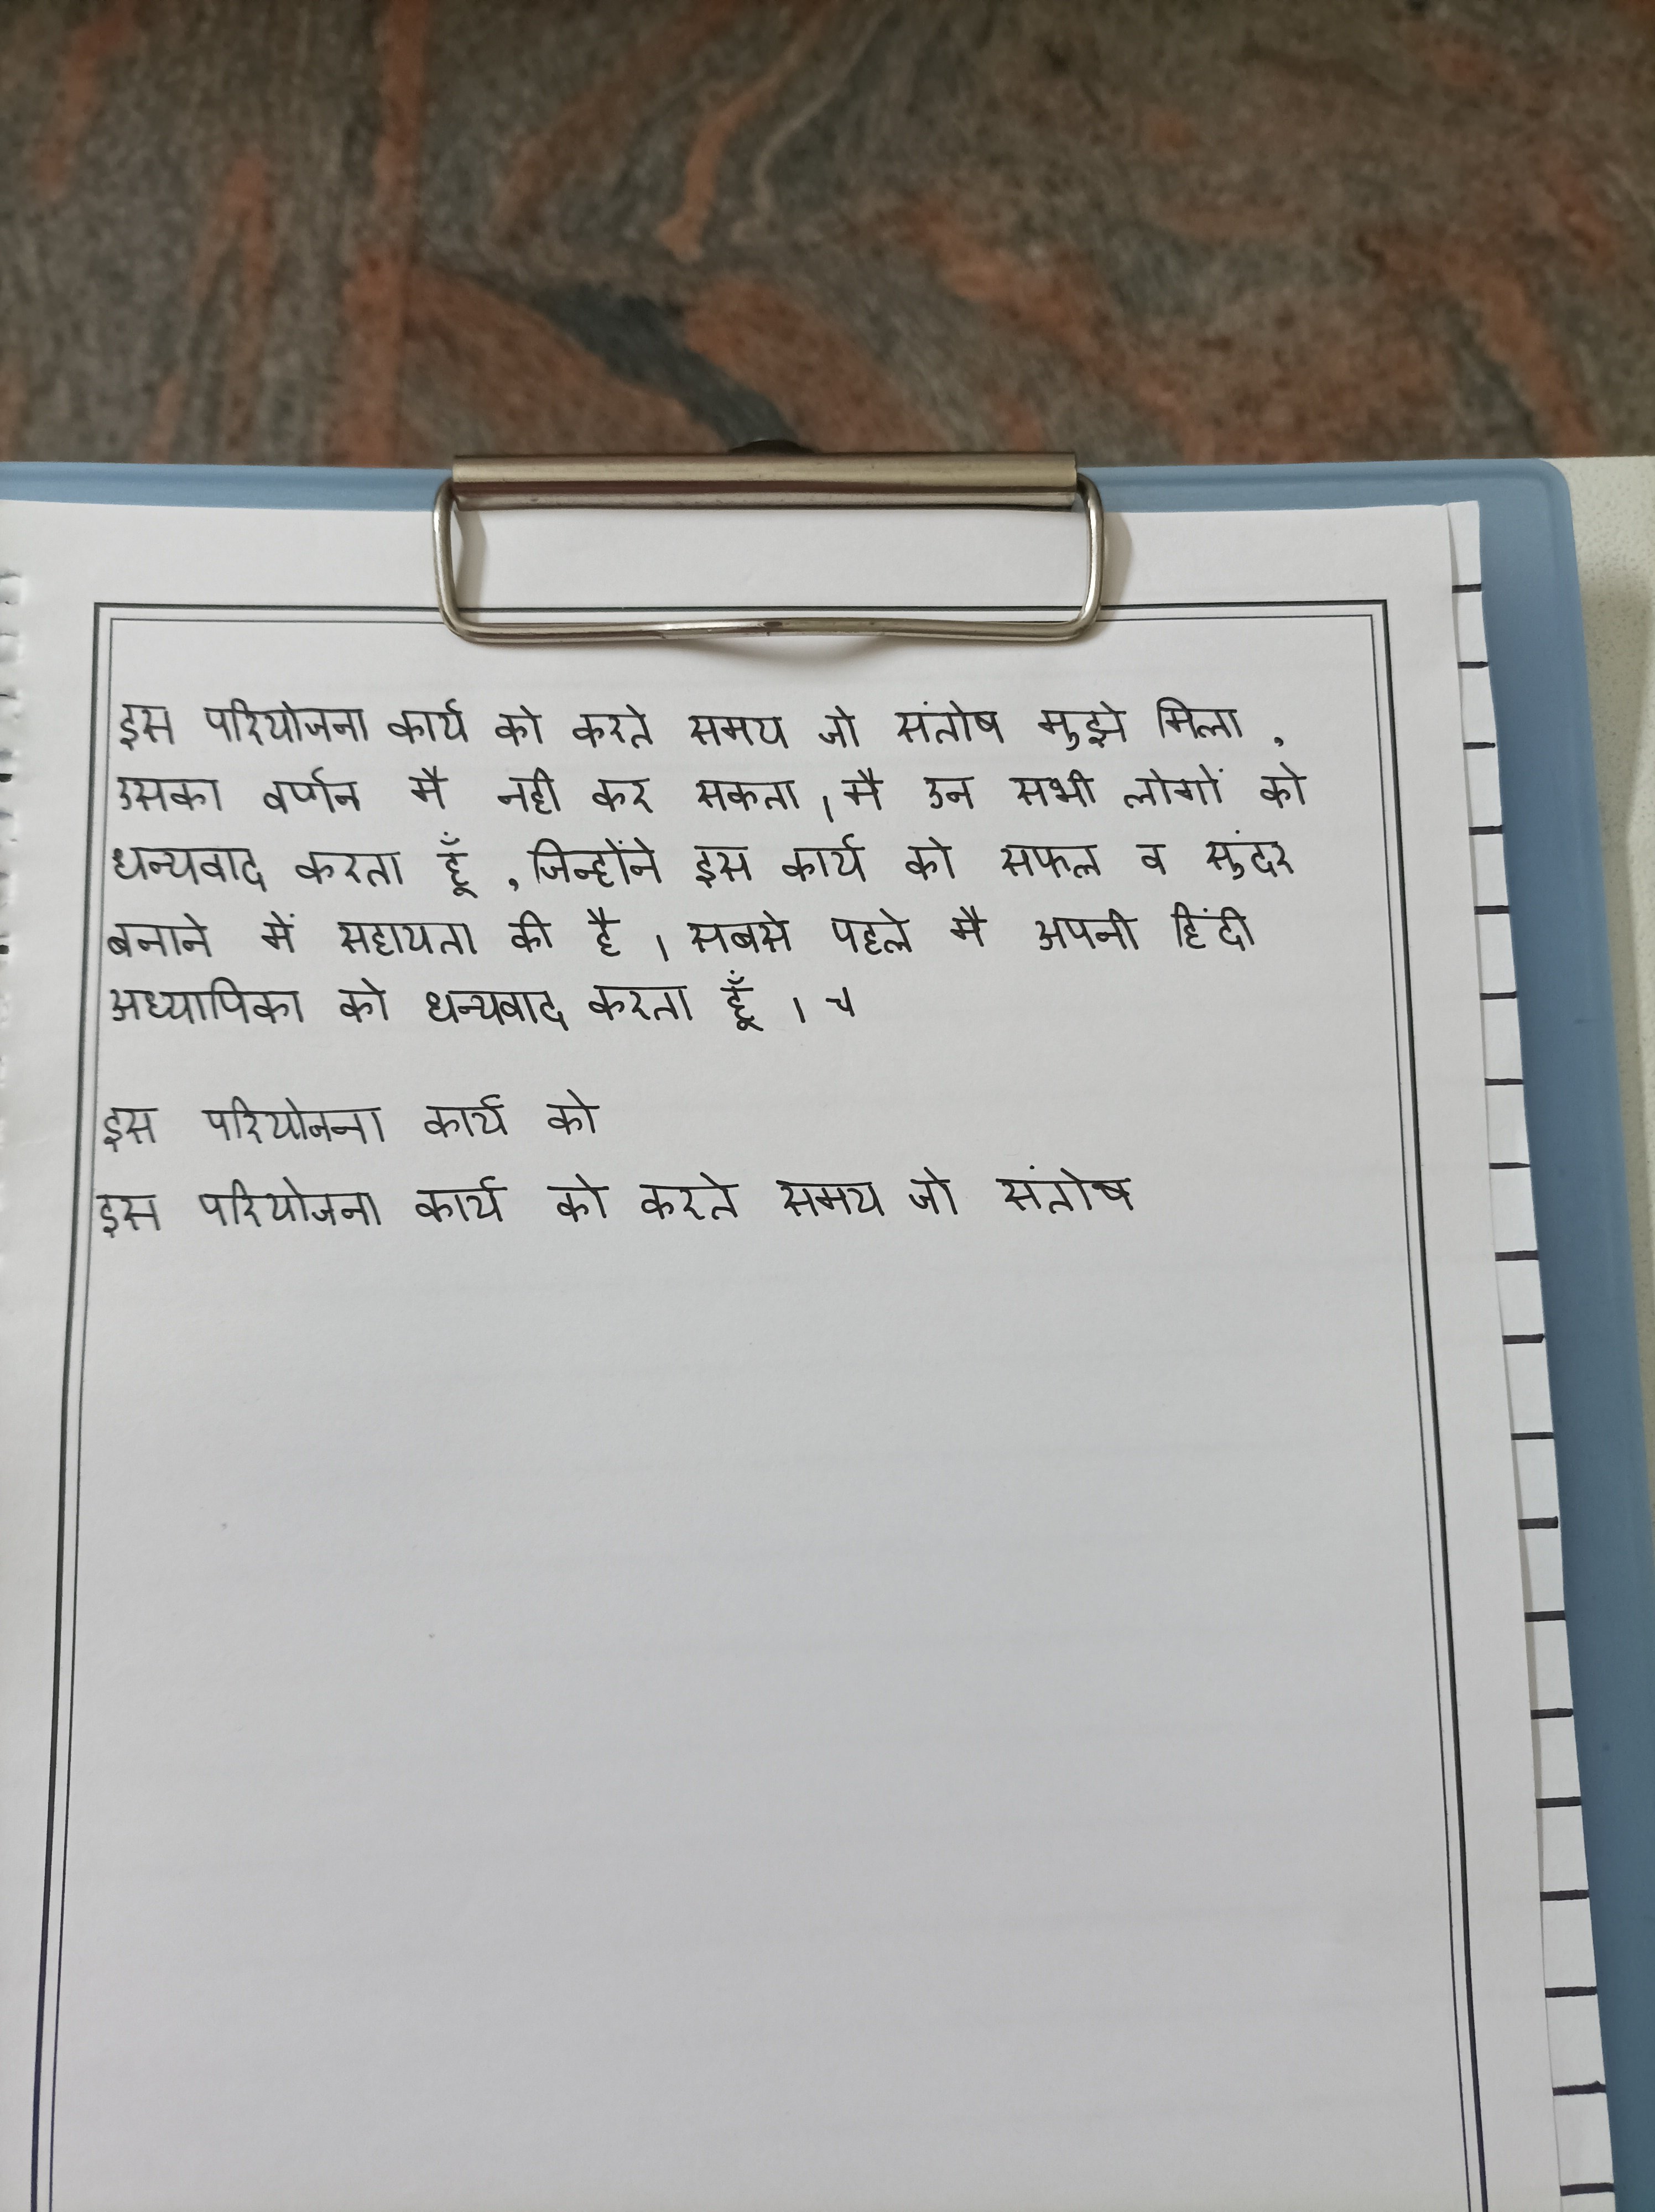 इस परियोजना कार्य को करते समय जो संतोष मुझे मिला ,
उसका वर्णन मै नही कर सकता । मै उन सभी लोगों को
धन्यवाद करता हूँ , जिन्होंने इस कार्य को सफल व सुंदर
बनाने में सहायता की है । सबसे पहले मै अपनी हिंदी
अध्यापिका को धन्यवाद करता हूँ ।
इस परियोजना कार्य को
इस परियोजना कार्य को करते समय जो संतोष